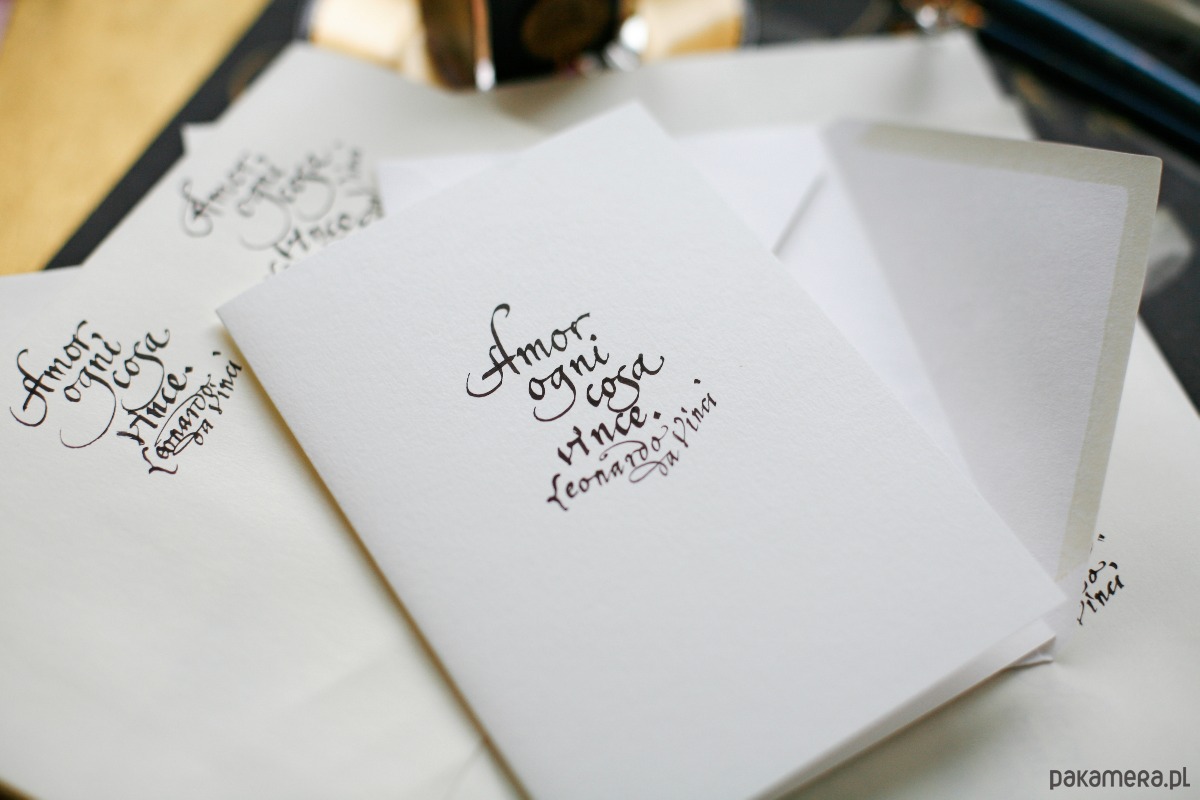 Amor
ogni
cosa
vince.
Leonardo
da Vinci
Amor
ogni
cosa
vince.
Leonardo
da Vinci
Amor
ogni
cosa
vince
Vinci
pakamera.pl